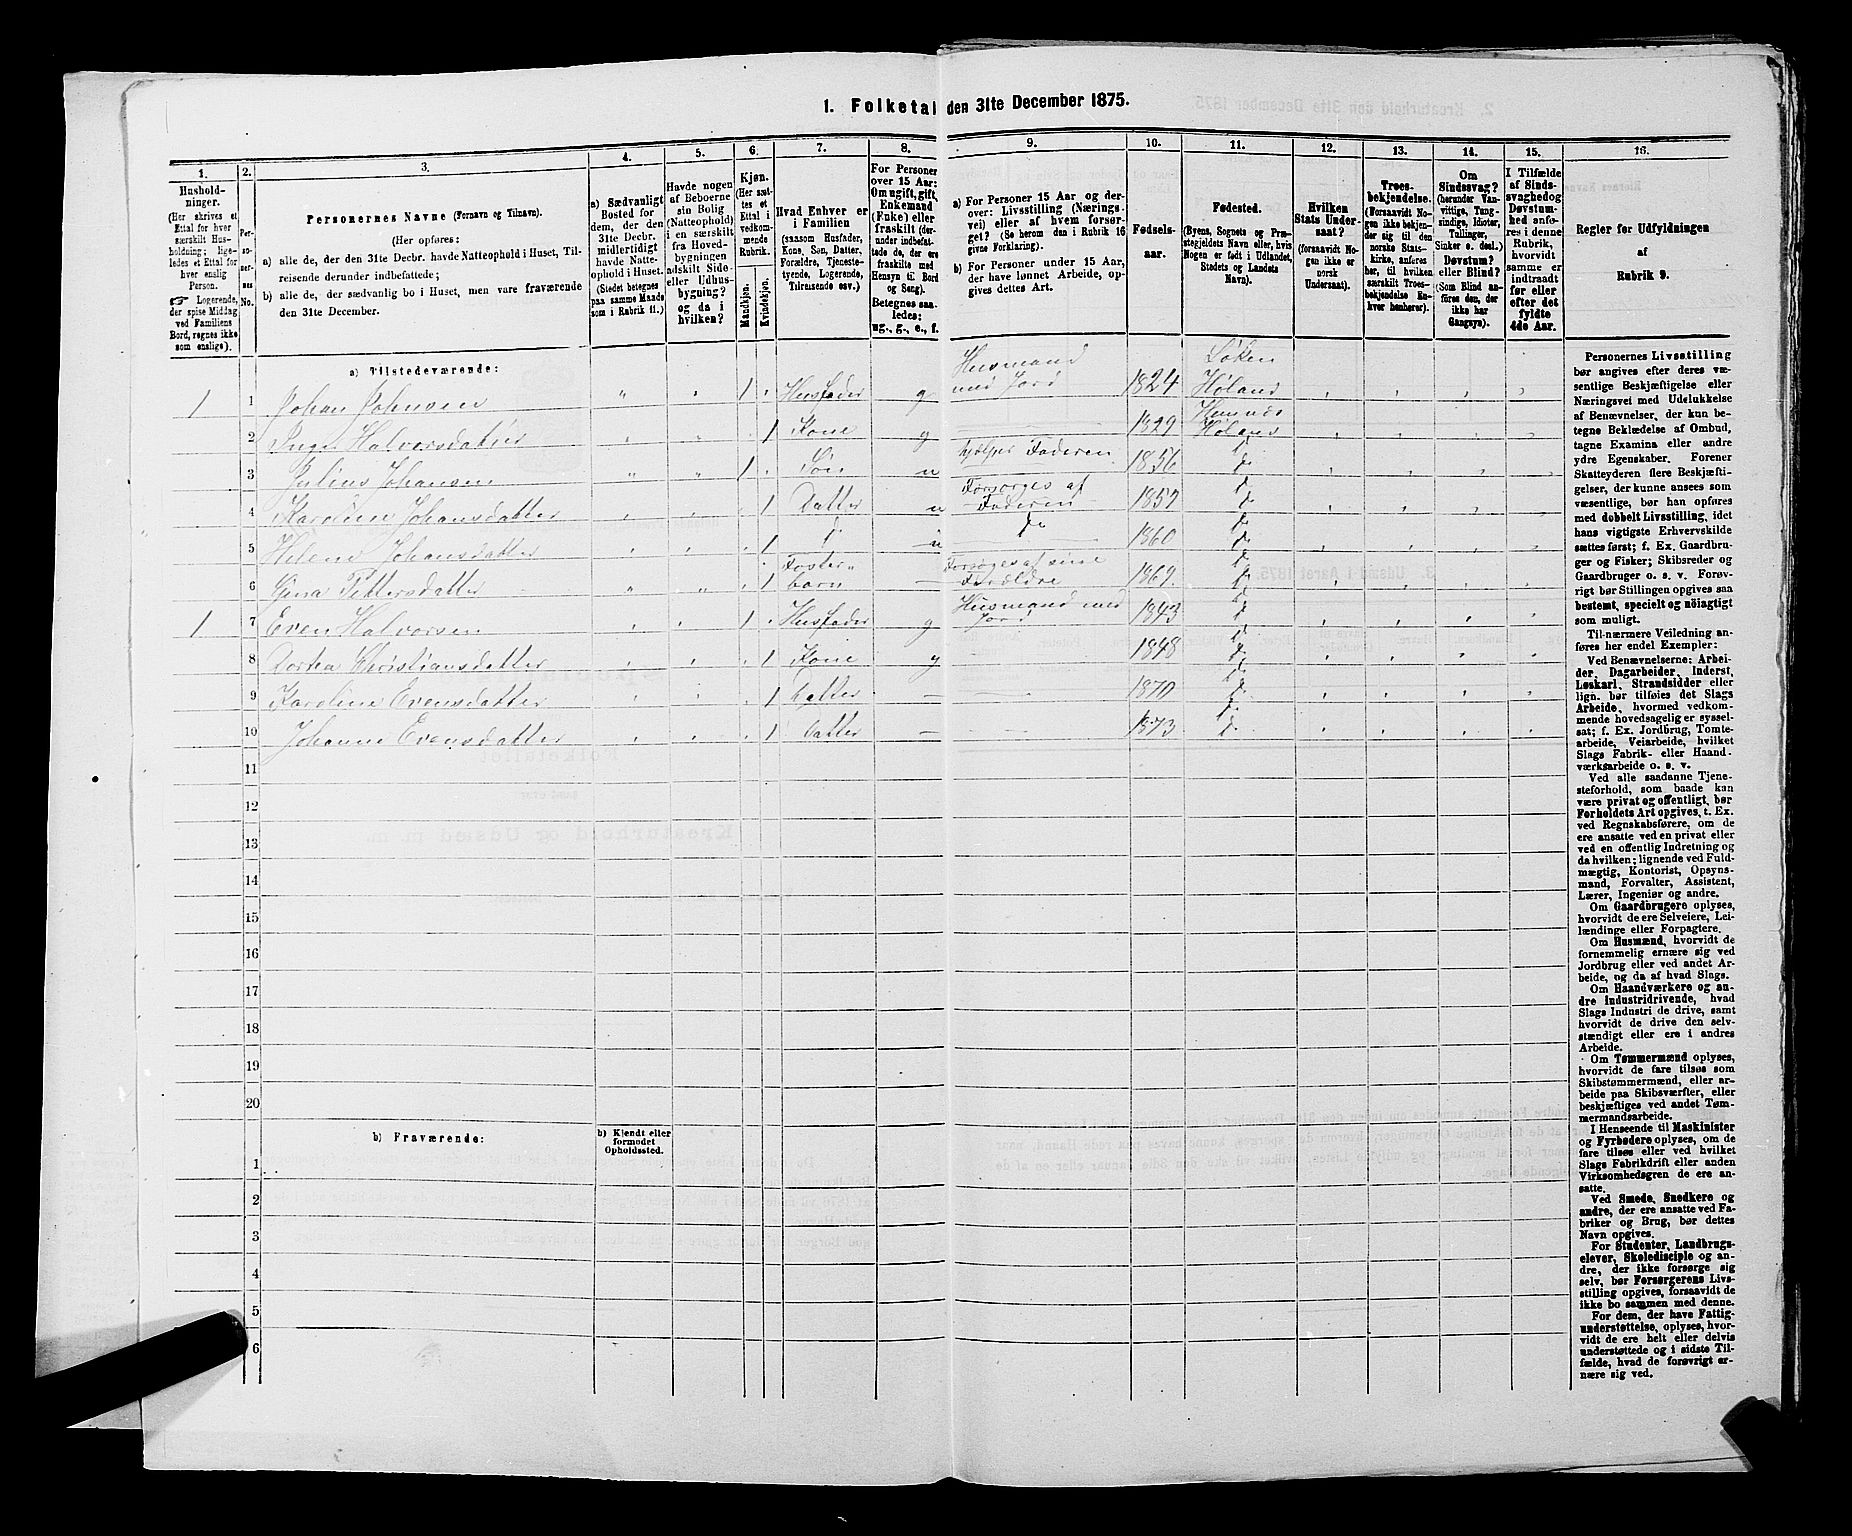 1. Folketal den 31te December 1875.
1. 2. 3. 4. 5. 6. 7. 8. 9. 10. 11. 12. 13. 14. 15. 16.
Hushold-
ninger.
(Her skrives et
Ettal for hver
særskilt Hus-
holdning; lige-
ledes et Ettal for
hver enslig
Person.
☞ Logerende,
der spise Middag
ved Familiens
Bord, regnes ikke
som enslige).
Per-
so-
ner-
nes
No.
Personernes Navne (Fornavn og Tilnavn).
(Her opføres:
a) alle de, der den 31te Decbr. havde Natteophold i Huset, Til-
reisende derunder indbefattede;
b) alle de, der sædvanlig bo i Huset, men vare fraværende
den 31te December.
a) Sædvanligt
Bosted for
dem, der den
31te Decbr.
midlertidigt
havde Natte-
ophold i Huset.
(Stedet betegnes
paa samme Maade
som i Rubrik 11.)
Havde nogen
af Beboerne
sin Bolig
(Natteophold)
i en særskilt
fra Hoved-
bygningen
adskilt Side-
eller Udhus-
bygning?
og da i
hvilken?
Kjøn.
(Her sæt-
tes et
Ettal i
vedkom-
mende
Rubrik.
Mandkjøn.
Kvindekjøn.
Hvad Enhver er
i Familien
(saasom Husfader,
Kone, Søn, Datter,
Forældre, Tjeneste-
tyende, Logerende,
Tilreisende osv.)
For Personer
over 15 Aar:
Om ugift, gift,
Enkemand
(Enke) eller
fraskilt (der-
under indbefat-
tede de, der ere
fraskilte med
Hensyn til Bord
og Seng).
Betegnes saa-
ledes:
ug., g., e., f.
a) For Personer 15 Aar og der-
over: Livsstilling (Nærings-
vei) eller af hvem forsør-
get? (Se herom den i Rubrik 16
givne Forklaring).
b) For Personer under 15 Aar,
der have lønnet Arbeide, op-
gives dettes Art.
Fødsels-
aar.
Fødested.
(Byens, Sognets og Præ-
stegjeldets Navn eller, hvis
Nogen er født i Udlandet,
Stedets og Landets
Navn).
Hvilken
Stats Under-
saat?
(forsaavidt No-
gen ikke er
norsk
Undersaat).
Troes-
bekjendelse.
(Forsaavidt No-
gen ikke bekjen-
der sig til den
norske Stats-
kirke, anføres
her, til hvilken
særskilt Troes-
bekjendelse En-
hver henhører).
Om
Sindssvag?
(herunder Van-
vittige, Tung-
sindige, Idioter,
Tullinger,
Sinker o. desl.)
Døvstum?
eller Blind?
(Som Blind an-
føres den, der
ikke har
Gangsyn).
I Tilfælde
af Sinds-
svaghed og
Døvstum-
hed anfø-
res i denne
Rubrik,
hvorvidt
samme er
indtraadt
før eller
efter det
fyldte
4de Aar.
Regler for Udfyldningen
af
Rubrik 9.
a) Tilstedeværende:
1 1 Johan Johnsen 1 Husfader g Husmand med Jord 1824 Løken Høland
2 Inger Halvorsdatter 1 Kone g 1829 Hemnæs Høland
3 Julius Johansen 1 Søn u hjælper Faderen 1856 do
4 Karoline Johansdatter 1 Datter u Forsørges af Faderen 1857 do
5 Helene Johansdatter 1 do u do 1860 do
6 Gina Pettersdatter 1 Foster- barn Forsørges af sine Forældre 1869 do
1 7 Even Halvorsen 1 Husfader g Husmand med Jord 1843 do
8 Dorthea Christiansdatter 1 Kone g 1848 do
9 Karoline Evensdatter 1 Datter 1870 do
10 Johanne Evensdatter 1 Datter 1873 do
11
12
13
14
15
16
17
18
19
20
b) Fraværende:
b) Kjendt eller
formodet
Opholdssted.
1
2
3
4
5
6
Personernes Livsstilling
bør angives efter deres væ-
sentlige Beskjæftigelse eller
Næringsvei med Udelukkelse
af Benævnelser, der kun be-
tegne Beklædelse af Ombud,
tagne Examina eller andre
ydre Egenskaber. Forener
Skatteyderen flere Beskjæfti-
gelser, der kunne ansees som
væsentlige, bør han opføres
med dobbelt Livsstilling, idet
hans vigtigste Erhvervskilde
sættes først; f. Ex. Gaardbru-
ger og Fisker; Skibsreder og
Gaardbruger o. s. v. Forøv-
rigt bør Stillingen opgives saa
bestemt, specielt og nøiagtigt
som muligt.
Til nærmere Veiledning an-
føres her endel Exempler:
Ved Benævnelserne: Arbei-
der, Dagarbeider, Inderst,
Løskarl, Strandsidder eller
lign. bør tilføies det Slags
Arbeide, hvormed vedkom-
mende hovedsagelig er syssel-
sat; f. Ex. Jordbrug, Tomte-
arbeide, Veiarbeide, hvilket
Slags Fabrik- eller Haand-
værksarbeide o. s. v.
Ved alle saadanne Tjene-
steforhold, som baade kan
være privat og offentligt, bør
Forholdets Art opgives, t. Ex.
ved Regnskabsførere, om de
ere ansatte ved en privat eller
ved en offentlig Indretning og
da hvilken; lignende ved Fuld-
mægtig, Kontorist, Opsyns-
mand, Forvalter, Assistent,
Lærer, Ingeniør og andre.
Om Gaardbrugere oplyses,
hvorvidt de ere Selveiere, Lei-
lændinge eller Forpagtere.
Om Husmænd, hvorvidt de
fornemmelig ernære sig ved
Jordbrug eller ved andet Ar-
beide, og da af hvad Slags.
Om Haandværkere og an-
dre Industridrivende, hvad
Slags Industri de drive, samt
hvorvidt de drive den selv-
stændigt eller ere i andres
Arbeide.
Om Tømmermænd oplyses,
hvorvidt de fare tilsøs som
Skibstømmermænd, eller ar-
beide paa Skibsværfter, eller
beskjæftiges ved andet Tøm-
mermandsarbeide.
I Henseende til Maskinister
og Fyrbødere oplyses, om de
fare tilsøs eller ved hvilket
Slags Fabrikdrift eller anden
Virksomhedsgren de ere an-
satte.
Ved Smede, Snedkere og
andre, der ere ansatte ved Fa-
briker og Brug, bør dettes
Navn opgives.
For Studenter, Landbrugs-
elever, Skoledisciple og an-
dre, der ikke forsørge sig
selv, bør Forsørgerens Livs-
stilling opgives, forsaavidt de
ikke bo sammen med denne.
For dem, der have Fattig-
understøttelse, oplyses, hvor-
vidt de ere helt eller delvis
understøttede og i sidste Til-
fælde, hvad de forøvrigt er-
nære sig ved.